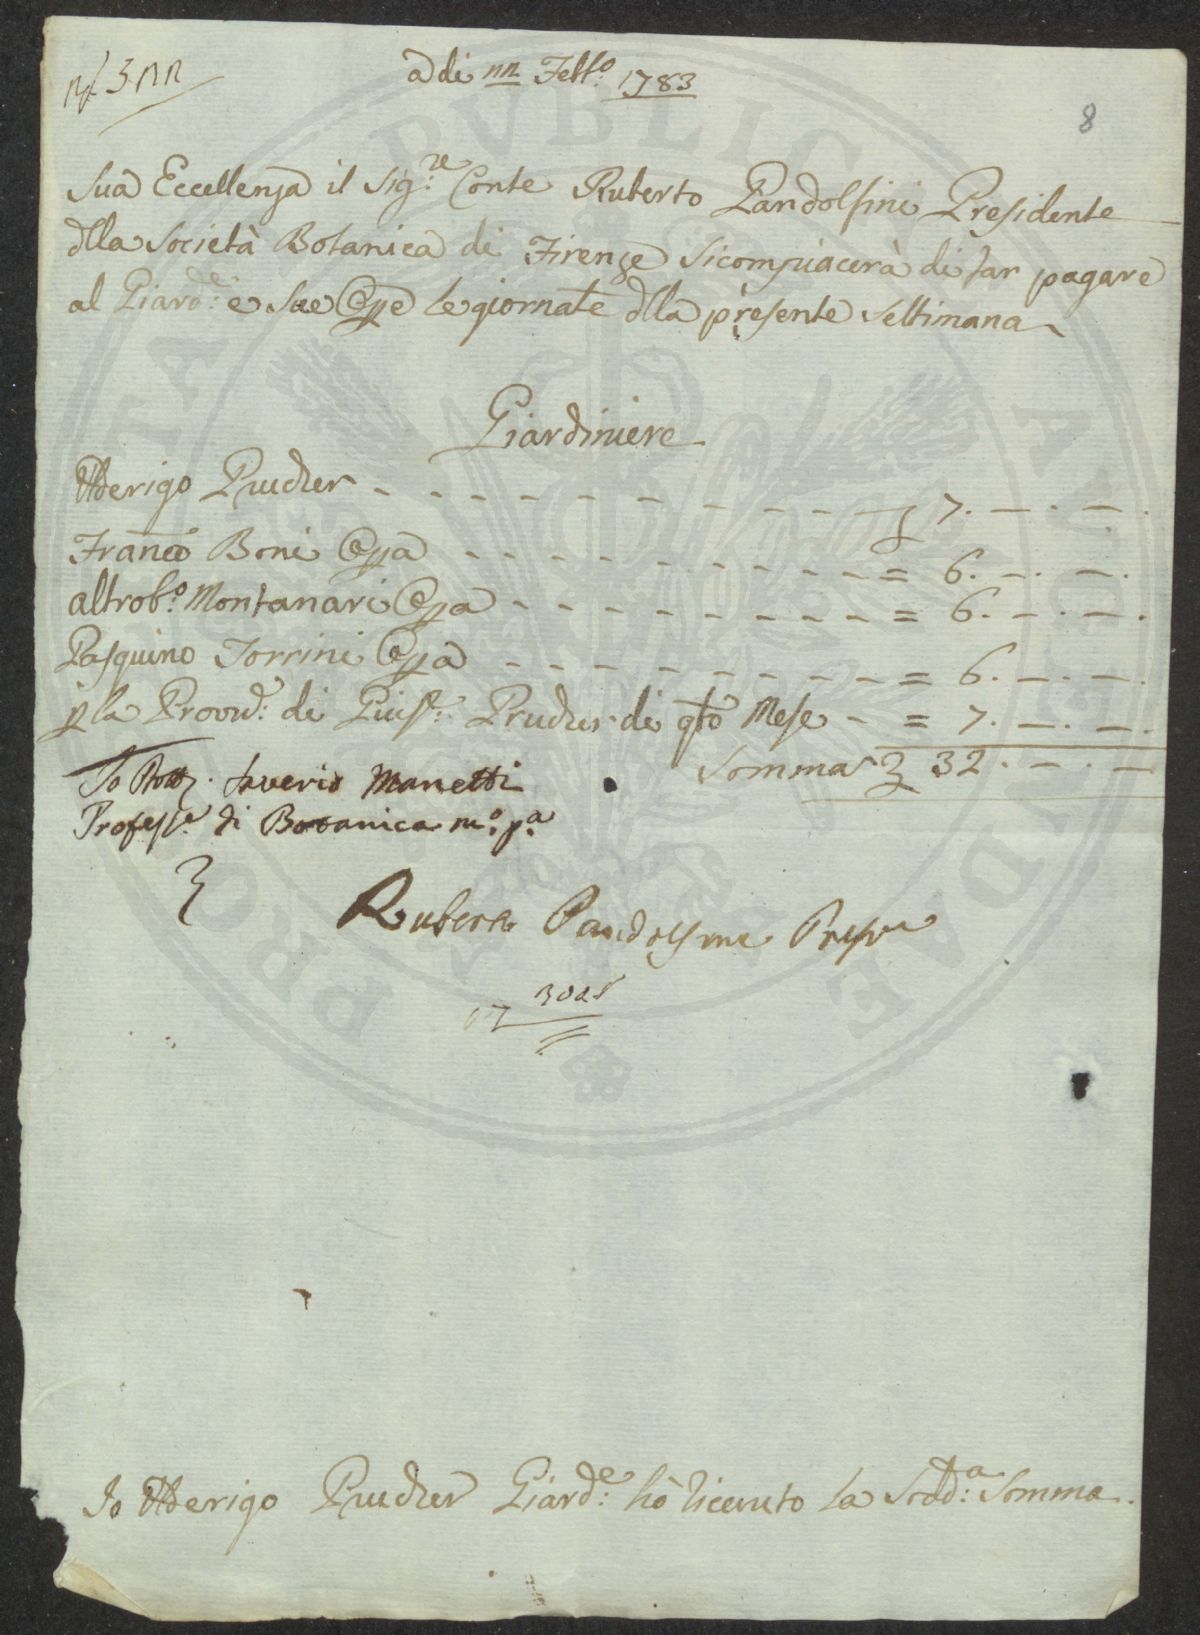 adi 22 Febb.o 1783
8
Sua Eccellenza il Sig.re Conte Ruberto Pandolfini Presidente
dlla Società Botanica di Firenze si compiacerà di far pagare
al Giard.e e sue Opere le giornate dlla presente settimana
Giardiniere
Alderigo Prucker - - - - - - - - - - 7. —. —.
Franco Boni Opra - - - - - - - - - = 6. —. —.
altrob.o Montanari Opra - - - - - - - = 6. —. —.
Pasquino Torrini Opra - - - - - - - - = 6. —. —.
p la Provvd. di Guisp. Prucker di qto Mese - = 7. —. —.
Somma 32. —. —
Io Dott. Saverio Manetti
Profess.e di Botanica m.o p.a
Ruberto Pandolfini Pres.e
Io Alderigo Prucker Giard.e hò ricevuto la Sodd.a Somma.
PVBLICAE